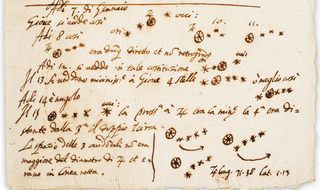 Adi 7. di Gennaio
Giove si vede così
Adi 8 così
era dūq diretto et nō retrogrado
Adi 12. si vedde in tale costituzione
Il 13. si veddono vicinissᵉ à Giove 4 stelle ò meglio così
Adi 14 è nugolo
Il 15 la prossᵃ à ♃ era la minᵉ la 4ᵃ era di-
stante dalla 3ᵃ il doppio circa
Lo spazio delle 3 occidētali nō era
maggiore del diametro di ♃ et e-
rano in linea retta.
♃ long. 71.38 lat. 1.13